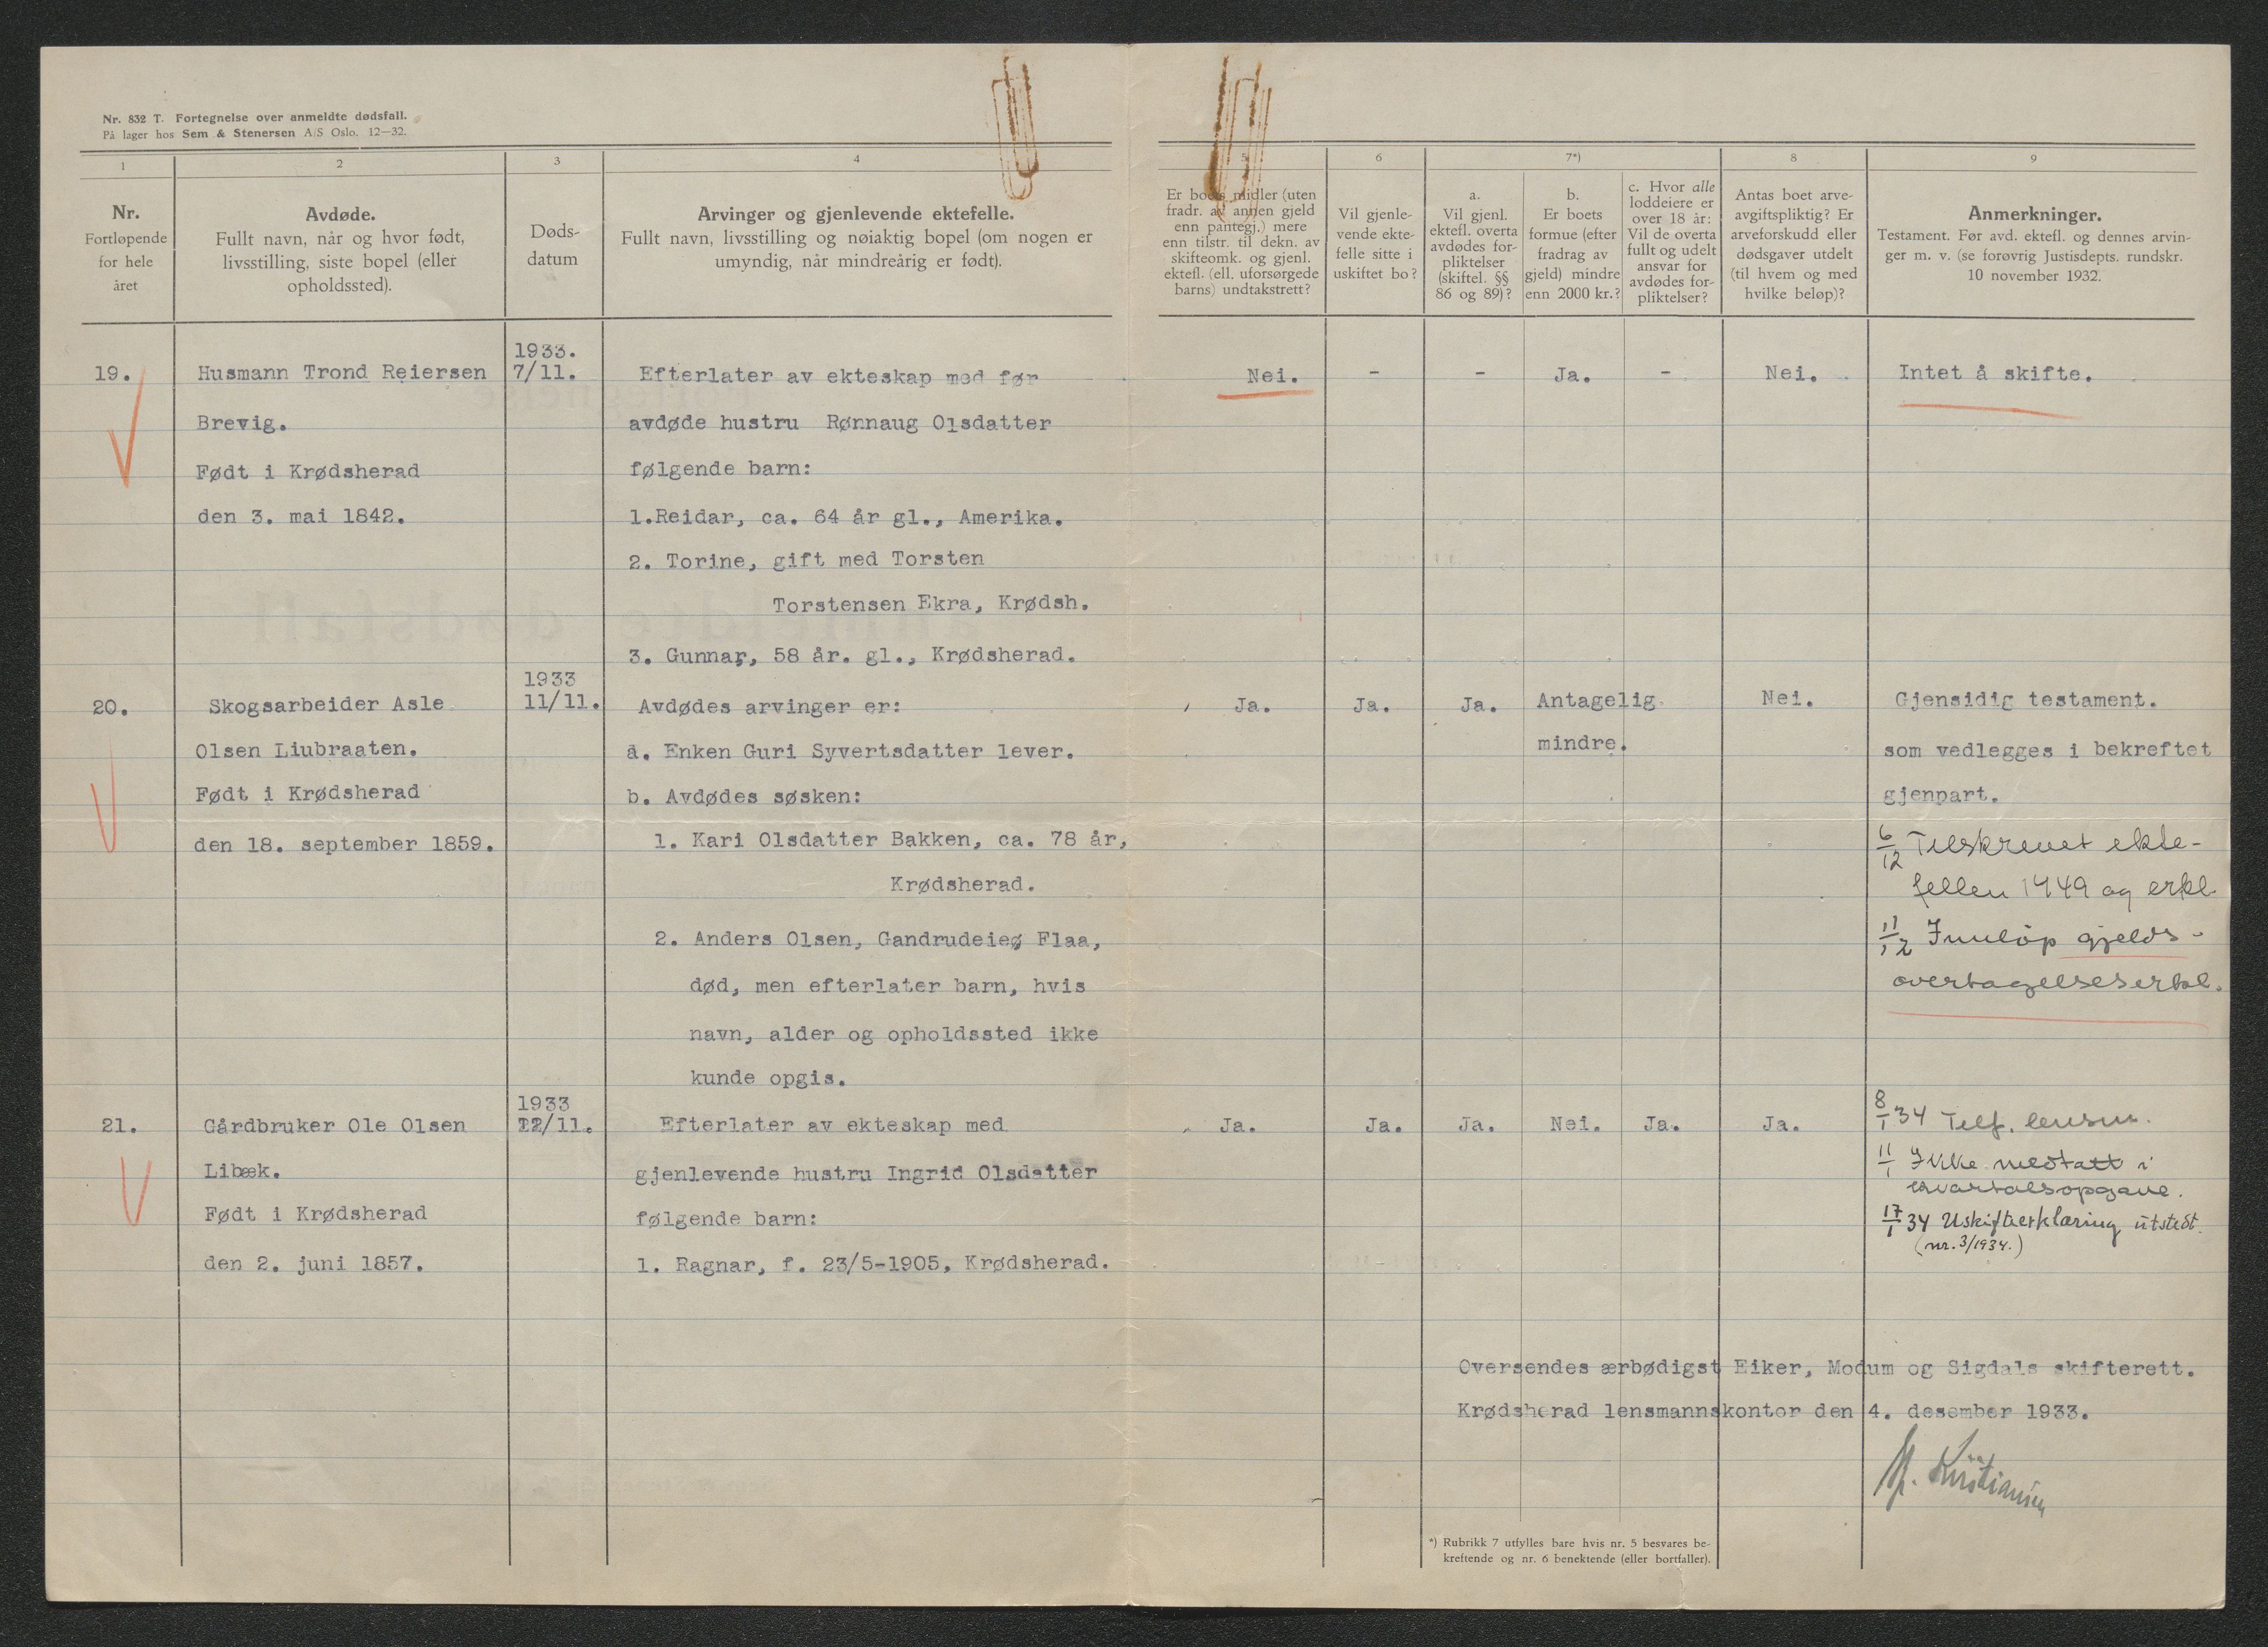 Nr. 832 T. Fortegnelse over anmeldte dødsfall.
På lager hos Sem & Stenersen A/S Oslo. 12—32.
1
2
3
4
5
6
7*)
8
9
Nr.
Fortløpende
for hele
året
Avdøde.
Fullt navn, når og hvor født,
livsstilling, siste bopel (eller
opholdssted).
Døds-
datum
Arvinger og gjenlevende ektefelle.
Fullt navn, livsstilling og nøiaktig bopel (om nogen er
umyndig, når mindreårig er født).
Er boets midler (uten
fradr. av annen gjeld
enn pantegj.) mere
enn tilstr. til dekn. av
skifteomk. og gjenl.
ektefl. (ell. uforsørgede
barns) undtakstrett?
Vil gjenle-
vende ekte-
felle sitte i
uskiftet bo?
a.
Vil gjenl.
ektefl. overta
avdødes for-
pliktelser
(skiftel. §§
86 og 89)?
b.
Er boets
formue (efter
fradrag av
gjeld) mindre
enn 2000 kr.?
c. Hvor alle
loddeiere er
over 18 år:
Vil de overta
fullt og udelt
ansvar for
avdødes for-
pliktelser?
Antas boet arve-
avgiftspliktig? Er
arveforskudd eller
dødsgaver utdelt
(til hvem og med
hvilke beløp)?
Anmerkninger.
Testament. Før avd. ektefl. og dennes arvin-
ger m. v. (se forøvrig Justisdepts. rundskr.
10 november 1932.
19.
Husmann Trond Reiersen
Brevig.
Født i Krødsherad
den 3. mai 1842.
1933.
7/11.
Efterlater av ekteskap med før
avdøde hustru Rønnaug Olsdatter
følgende barn:
1.Reidar, ca. 64 år gl., Amerika.
2. Torine, gift med Torsten
Torstensen Ekra, Krødsh.
3. Gunnar, 58 år. gl., Krødsherad.
Nei.
-
-
Ja.
-
Nei.
Intet å skifte.
20.
Skogsarbeider Asle
Olsen Liubraaten.
Født i Krødsherad
den 18. september 1859.
1933
11/11.
Avdødes arvinger er:
a. Enken Guri Syvertsdatter lever.
b. Avdødes søsken:
1. Kari Olsdatter Bakken, ca. 78 år,
Krødsherad.
2. Anders Olsen, Gandrudeieg Flaa,
død, men efterlater barn, hvis
navn, alder og opholdssted ikke
kunde opgis.
Ja.
Ja.
Ja.
Antagelig
mindre.
Nei.
Gjensidig testament.
som vedlegges i bekreftet
gjenpart.
6/12 Tilskrevet ekte-
fellen 1449 og erkl.
11/12 Innløp gjelds-
overtagelseserkl.
21.
Gårdbruker Ole Olsen
Libæk.
Født i Krødsherad
den 2. juni 1857.
1933
12/11.
Efterlater av ekteskap med
gjenlevende hustru Ingrid Olsdatter
følgende barn:
1. Ragnar, f. 23/5-1905, Krødsherad.
Ja.
Ja.
Ja.
Nei.
Ja.
Ja.
8/1 34 Telf. lensm.
11/1 Ikke medtatt i
kvartalsopgave.
17/1 34 Uskifteerklæring utstedt.
(nr. 3/1934.)
Oversendes ærbødigst Eiker, Modum og Sigdals skifterett.
Krødsherad lensmannskontor den 4. desember 1933.
Kristiansen
*) Rubrikk 7 utfylles bare hvis nr. 5 besvares be-
kreftende og nr. 6 benektende (eller bortfaller).